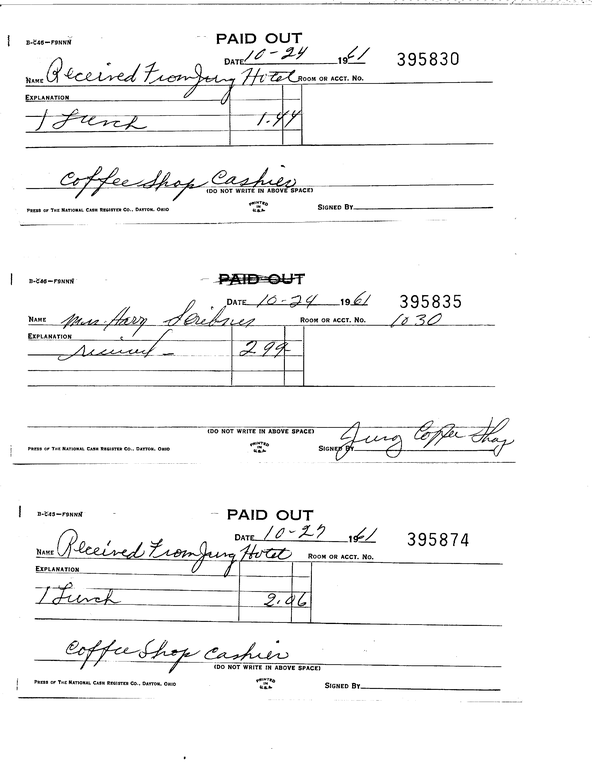 B-C46-F9NNN PAID OUT
DATE 10-24 1961 395830
NAME Received From Jung Hotel ROOM OR ACCT. NO.
EXPLANATION
1 Lunch 1.44
Coffee Shop Cashier
(DO NOT WRITE IN ABOVE SPACE)
PRESS OF THE NATIONAL CASH REGISTER CO., DAYTON, OHIO PRINTED IN U.S.A. SIGNED BY
B-C46-F9NNN PAID OUT
DATE 10-24 1961 395835
NAME Mrs. Harry ROOM OR ACCT. NO. 1030
EXPLANATION
received - 2 99
(DO NOT WRITE IN ABOVE SPACE)
PRESS OF THE NATIONAL CASH REGISTER CO., DAYTON, OHIO PRINTED IN U.S.A. SIGNED BY Jung Coffee Shop
B-C45-F9NNN PAID OUT
DATE 10-27 1961 395874
NAME Received From Jung Hotel ROOM OR ACCT. NO.
EXPLANATION
1 Lunch 2.06
Coffee Shop Cashier
(DO NOT WRITE IN ABOVE SPACE)
PRESS OF THE NATIONAL CASH REGISTER CO., DAYTON, OHIO PRINTED IN U.S.A. SIGNED BY